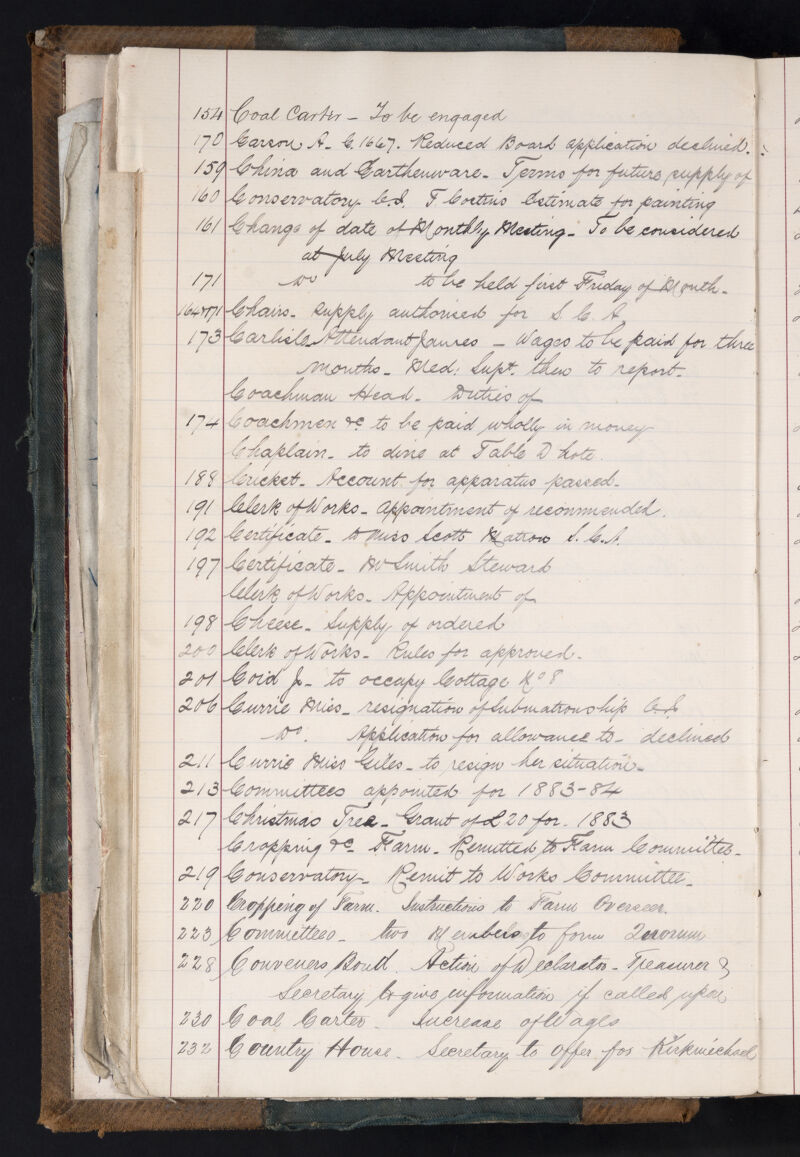 154 Coal Carter - To be engaged
170 Carson A. C. 1667. Reduced Board application declined.
159 China and Earthenware - Terms for future supply of
160 Conservatory C.I. T Costins Estimate for painting
161 Change of date of Monthly Meeting - To be considered
at July Meeting
171 Do to be held first Friday of Month -
164+171 Chairs - Supply authorised for S. C. A
173 Carlisle Attendant James - Wages to be paid for three
Months - Med: Supt. then to report -
Coachman Head - Duties of
174 Coachmen &c to be paid wholly in money
Chaplain - to dine at Table D'hote.
188 Cricket - Account for apparatus passed -
191 Clerk of Works - Appointment of recommended.
192 Certificate - to Miss Scott Matron S. C. A.
197 Certificate - Mr Smith Steward
Clerk of Works - Appointment of
198 Cheese - Supply of ordered
200 Clerk of Works - Rules for approved -
201 Coid J. - to occupy Cottage No 8
206 Currie Miss - resignation of Submatronship C.I.
Do. Application for allowance to - declined
211 Currie Miss Giles - to resign her situation -
213 Committees appointed for 1883-84
217 Christmas Tree - Grant of £20 for - 1883
Cropping &c Farm - Remitted to Farm Committee -
219 Conservatory - Remit to Works Committee -
220 Cropping of Farm. Instructions to Farm Overseer.
223 Committees - two Members to form Quorum
228 Conveners Bond. Action of Declarator - Treasurer &
Secretary to give information if called upon
230 Coal Carter - Increase of Wages
232 Country House - Secretary to offer for Kirkmichael